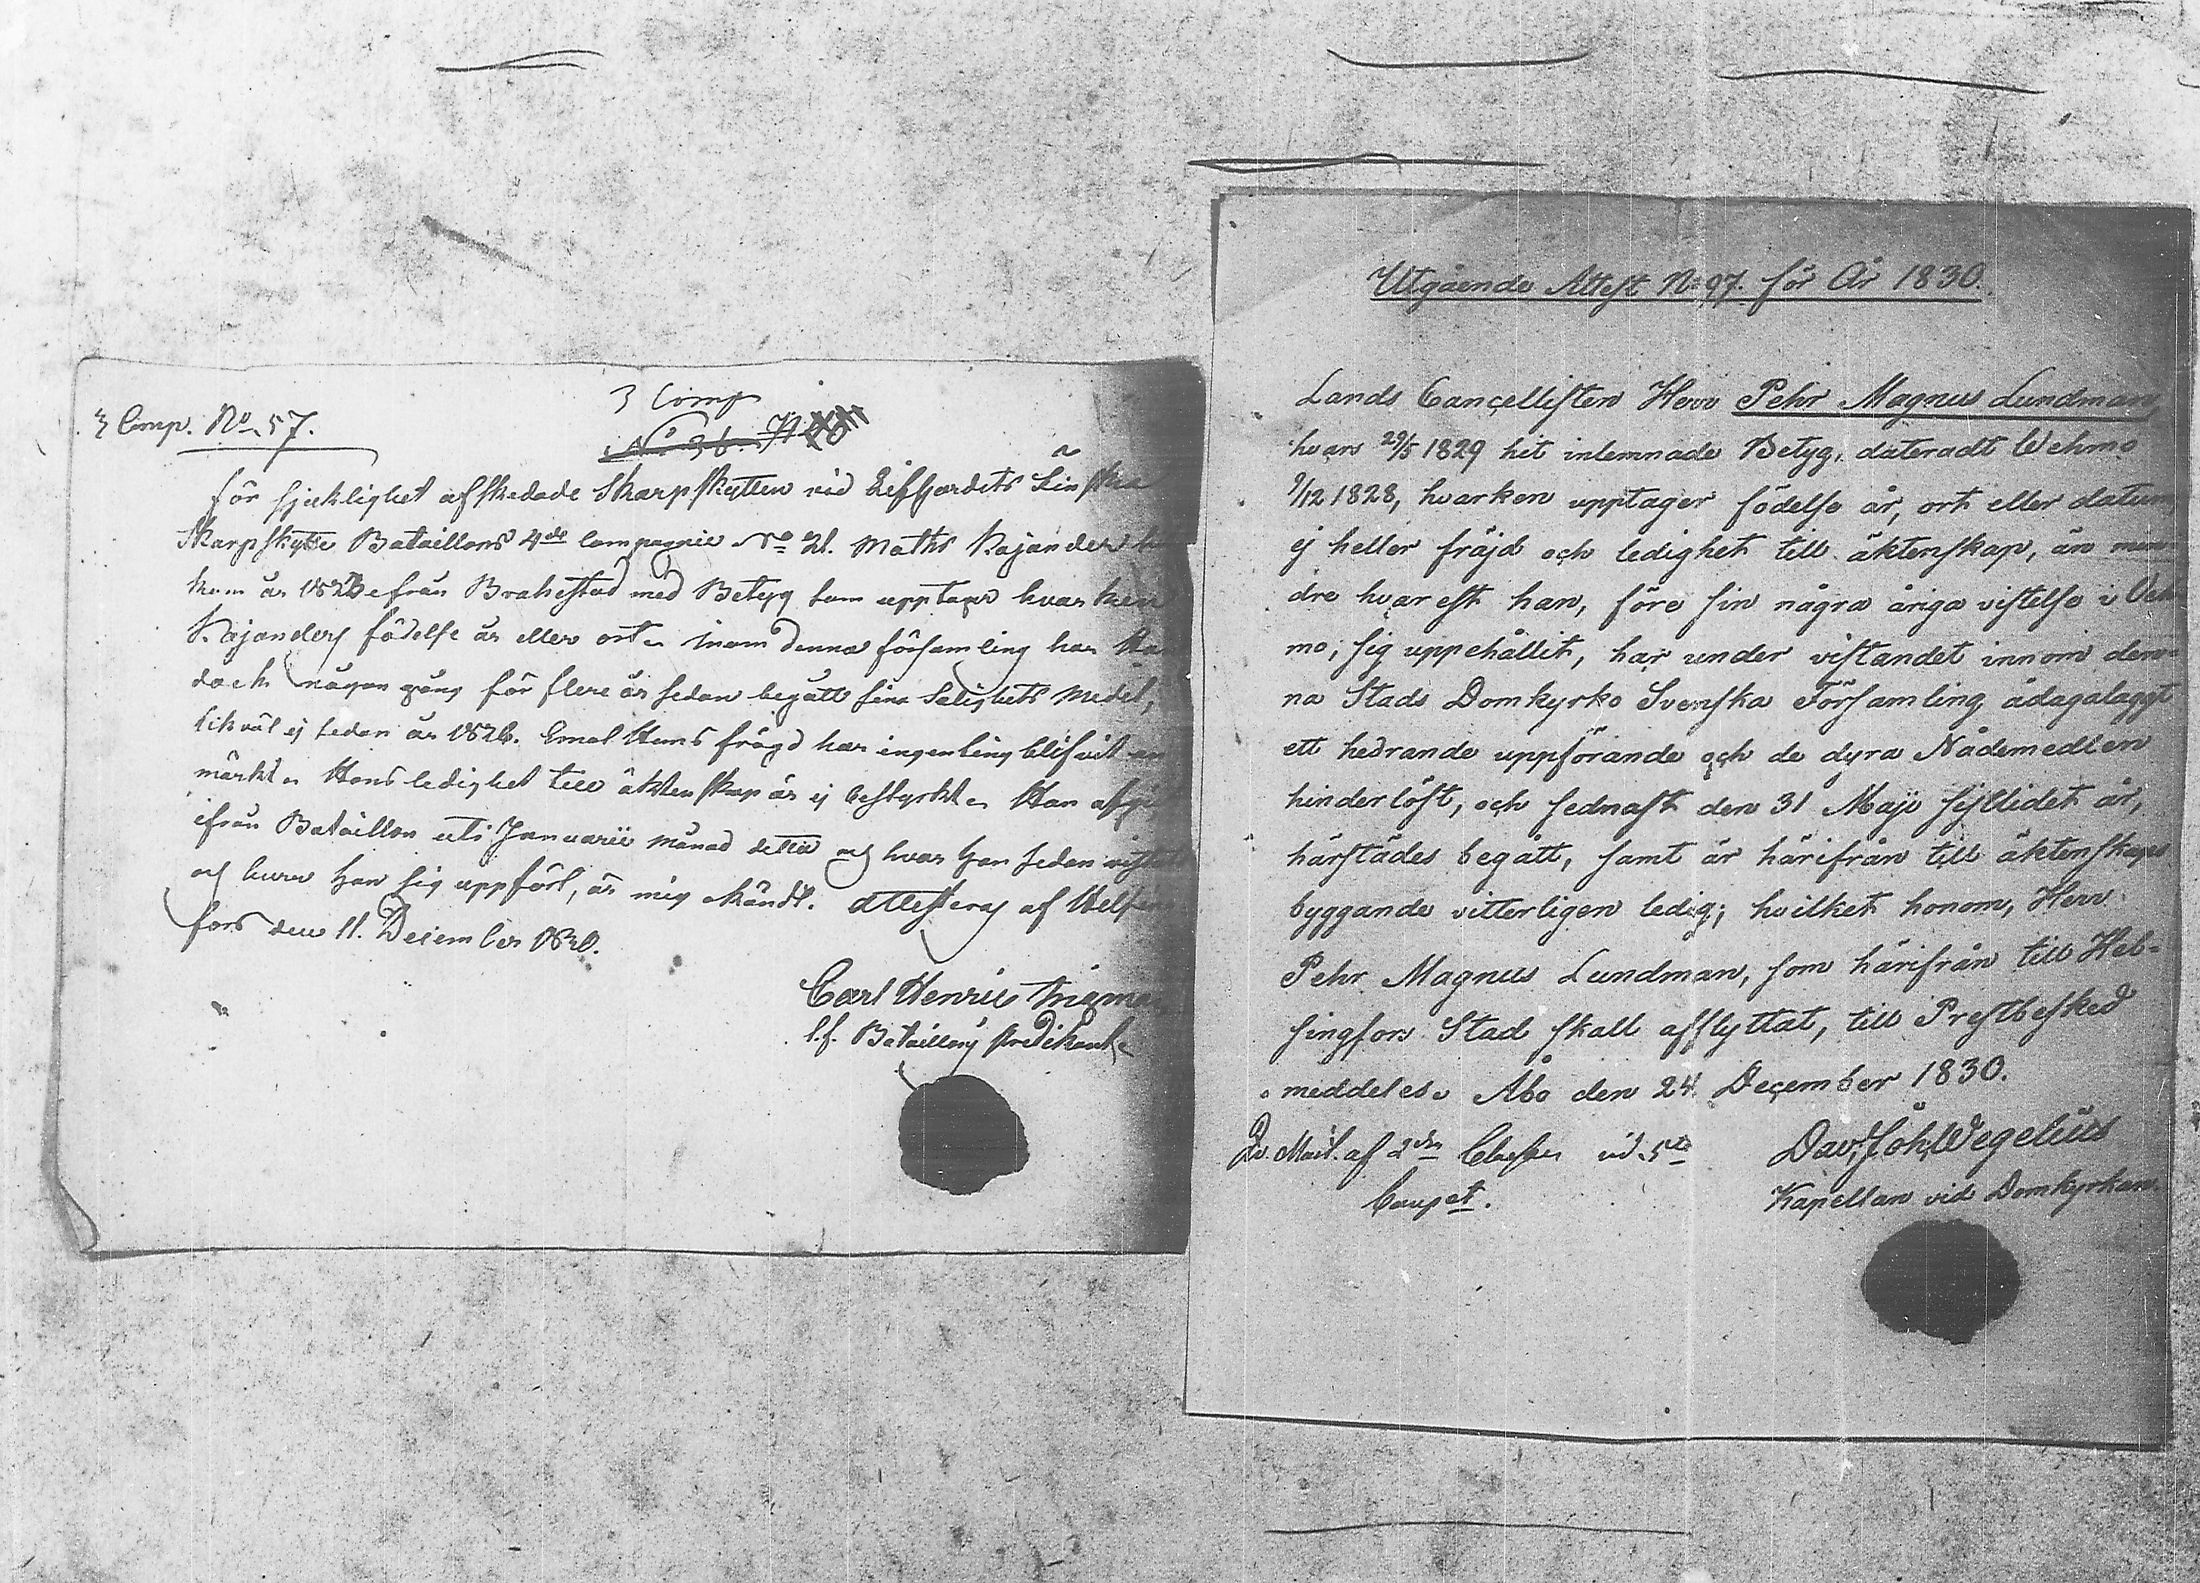 3 Comp. No 57.
3 Comp
No 36.
för sjuklighet afskedade Skarpskytten vid Lifgardets Finska
Skarpskytte Bataillons 4de Compagnie No 21. Maths Kajander
kom år 1823 ifrån Brahestad med Betyg som upptager hvarken
Kajanders födelse år eller ort. Inom denna församling har Han
doch någon gång för flere år sedan begått sina Salighets medel,
likväl ej sedan år 1826. Emot Hans frägd har ingenting blifvit an
märkt. Hans ledighet till äktenskap är ej bestyrkt. Han afgick
ifrån Bataillon uti Januarii månad detta och hvar han sedan vistats
och huru han sig uppfört, är mig okändt. Attesteras af Helsing
fors den 11. December 1830.
Carl Henric
s.f. Bataillons Predikant
Utgående Attest No 97. för År 1830.
Lands Cancellisten Herr Pehr Magnus Lundman,
hvars 29/5 1829 hit inlemnade Betyg, dateradt Wehmo
9/12 1828, hvarken upptager födelse år, ort eller datum,
ej heller fräjd och ledighet till äktenskap, än min
dre hvarest han, före sin några åriga vistelse i Veh
mo, sig uppehållit, har under vistandet innom den=
na Stads Domkyrko Svenska Församling, ådagalaggt
ett hedrande uppförande och de dyra Nådemedlen
hinderlöst, och sednast den 31 Maji sistlidet år,
härstädes begått, samt är härifrån till äktenskaps
byggande vitterligen ledig; hvilket honom, Herr
Pehr Magnus Lundman, som härifrån till Hel=
singfors Stad skall afflyttat, till Prestbesked
meddeles. Åbo den 24 December 1830.
af 2dra Classen vid 5te
Dav. Joh. Wegelius
Kapellan vid Domkyrkan.